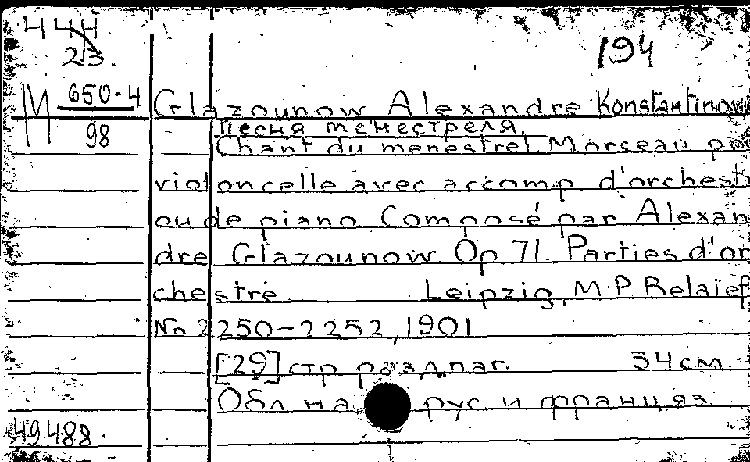 444
23
194
M 650-4
98
Glazounow Alexandre Konstantinow
Песня менестреля.
Chant du menestrel Morseau po
violoncelle avec accomp d'orchest
ou de piano Composé par Alexan
dre Glazounow Op 71 Parties d'or
chestre Leipzig, M P Belaief
No 2250-2252, 1901
[29] стр разд. паг. 34 см
Обл на рус и француз
49488.